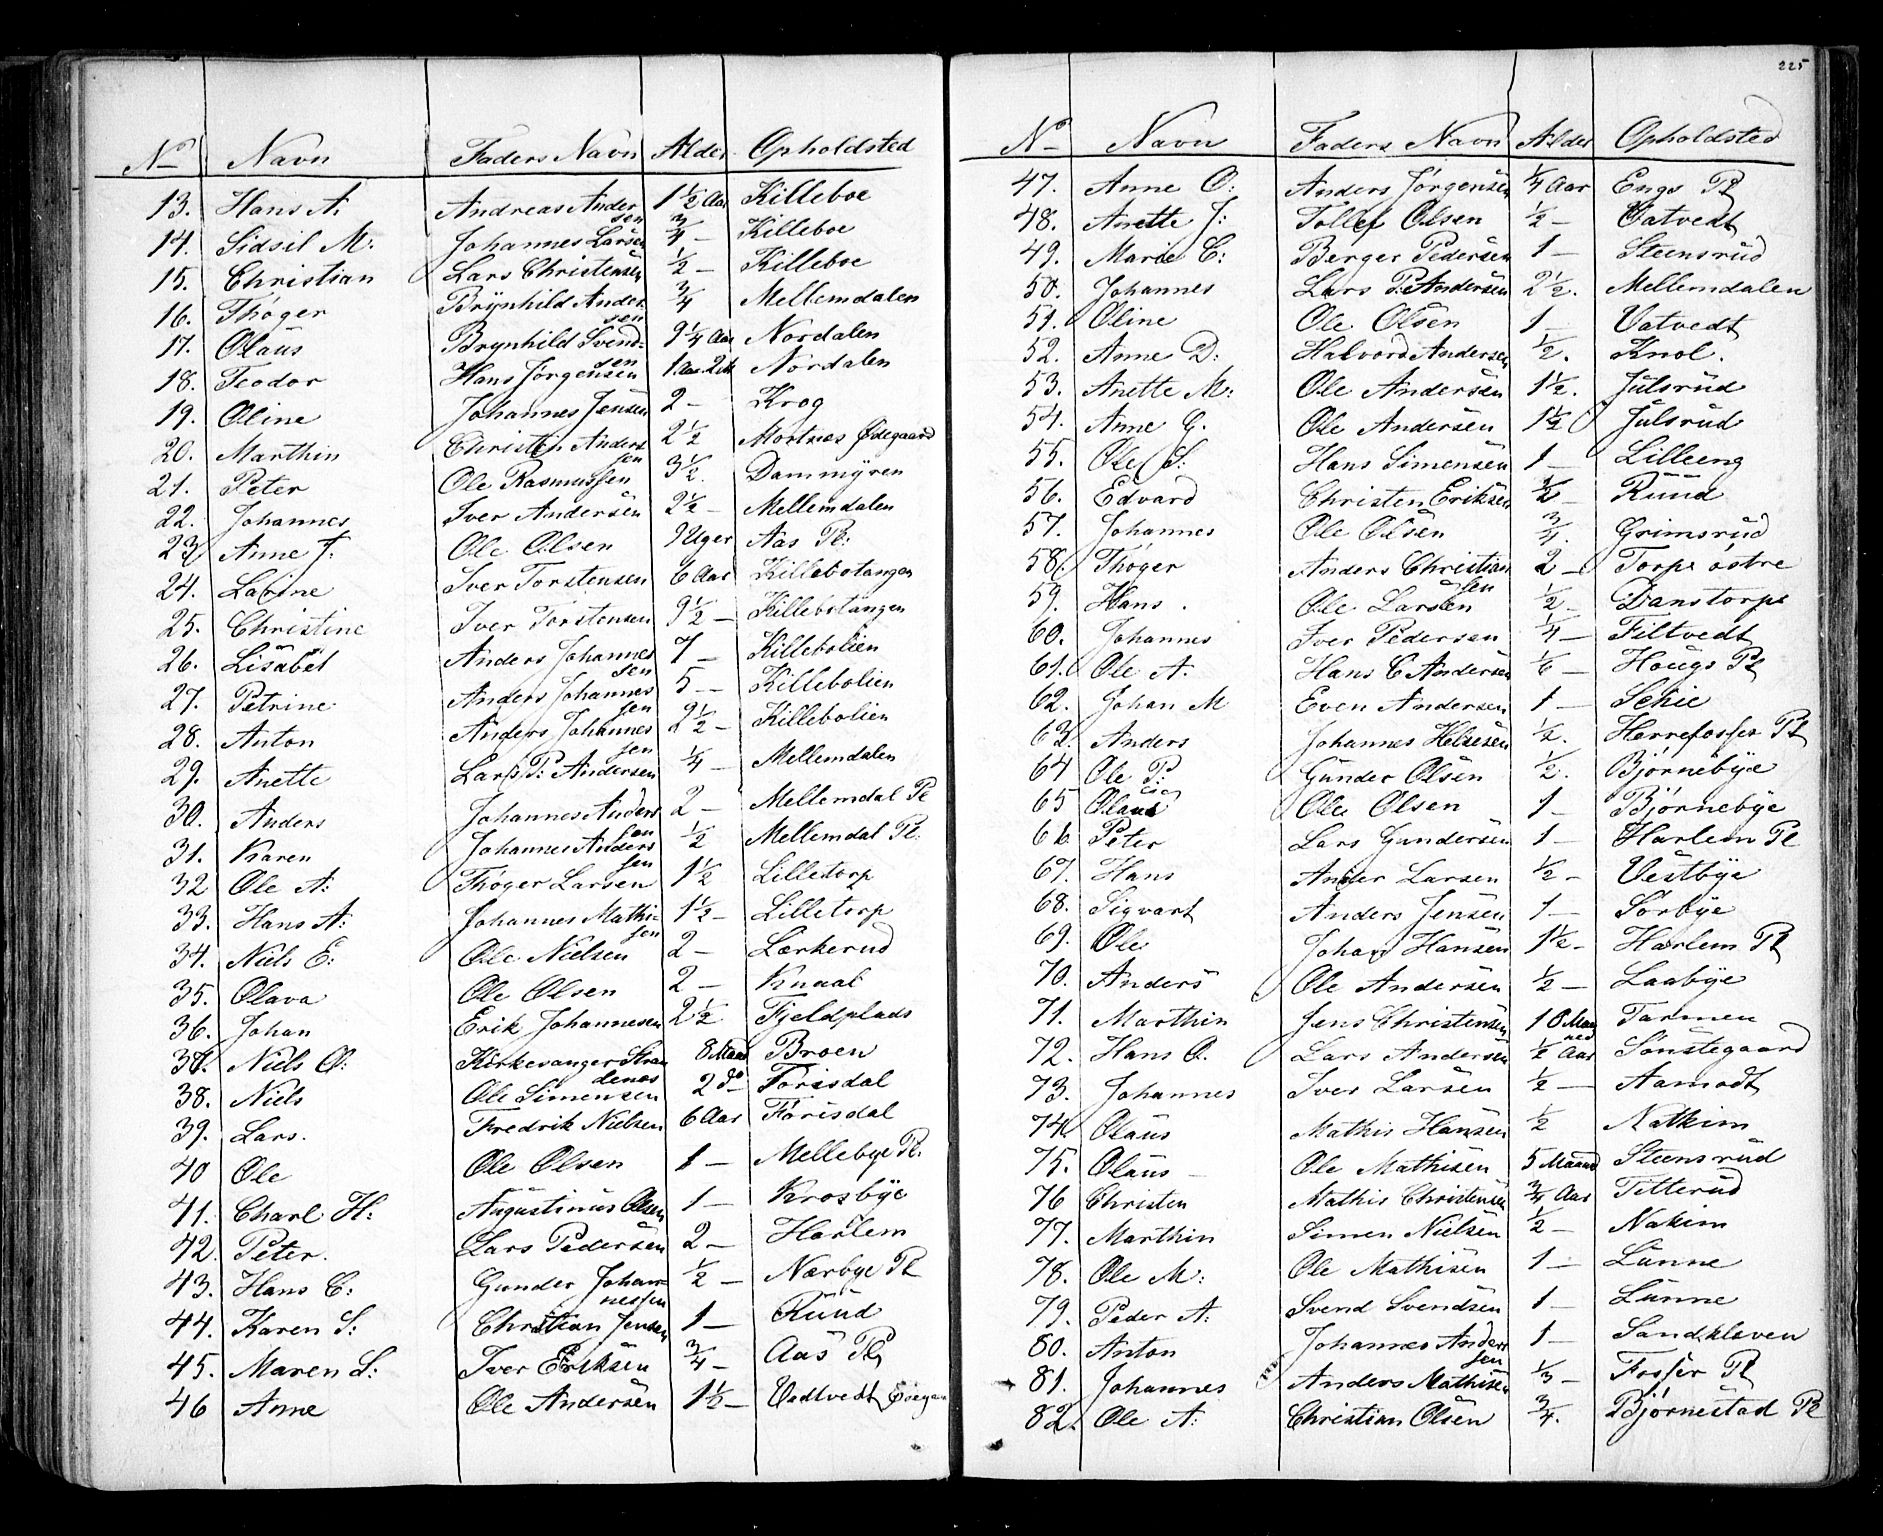 No Navn Faders Navn Alder Opholdsted
13. Hans A. Andreas Andersen 1 1/2 Aar Killeboe
14. Sidsil M. Johannes Larsen 3/4 — Killeboe
15. Christian Lars Christensen 1/2 — Killeboe
16. Thøger Brynhild Andersen 3/4 Mellemdalen
17. Olaus Brynhild Svendsen 9 1/4 Aar Nordalen
18. Teodor Hans Jørgensen 1 Aar 2 Nordalen
19. Oline Johannes Jensen 2 — Krog
20. Marthin Christen Andersen 2 1/2 Mortnæs Ødegaard
21. Peter Ole Rasmussen 3 1/2. Dammyren
22. Johannes Iver Andersen 2 1/2 — Mellemdalen
23 Anne J: Ole Olsen 9 Uger Aas Pl:
24. Larine Iver Torstensen 6 Aar Killebotangen
25. Christine Iver Torstensen 9 1/2 — Killebotangen
26. Lisabet Anders Johannessen 7 — Killebolien
27. Petrine Anders Johannessen 5 — Killebolien
28. Anton Anders Johannessen 2 1/2 — Killebolien
29. Anette Lars P: Andersen 1/4 — Mellemdalen
30. Anders Johannes Anderssen 2 — Mellemdal Pl
31. Karen Johannes Anderssen 1/2 Mellemdal Pl.
32 Ole A: Thøger Larsen 1 1/2 Lilletorp
33. Hans A: Johannes Mathisen 1 1/2 — Lilletorp
34. Niels E: Ole Nielsen 2 — Lærkerud
35. Olava Ole Olsen 2 — Knaal
36. Johan Erik Johannesen 2 1/2 Fjeldplads
38. Niels O: Kirkesanger Strandenæs 8 Maan Broen
38. Niels Ole Simensen 2 do — Forisdal
39. Lars. Fredrik Nielsen 6 Aar Forisdal
40 Ole Ole Olsen 1 — Mellebye Pl.
41. Charl H: Augustinus Olsen 1 — Krosbye
42. Peter. Lars Pedersen 2 — Harlem
43. Hans C: Gunder Johannessen 1/2 — Nærbye Pl
44. Karen S: Christian Jensen 1 — Ruud
45. Maren S: Iver Eriksen 3/4 — Aas Pl
46 Anne Ole Andersen 1 1/2 — Vadtvedt
225
No Navn Faders Navn Alder Opholdsted
47. Anne O: Anders Jørgensen 1/4 Aar Engs Pl
48. Anette J: Tollef Olsen 1/2 — Vatvedt
49. Marie C: Berger Pedersen 1 — Steensrud
50. Johannes Lars P. Andersen 2 1/2. Mellemdalen
51. Oline Ole Olsen 1 — Vatvedt
52. Anne D: Halvord Andersen 1/2. Knol.
53. Anette M: Ole Andersen 1 1/2. Julsrud
54. Anne G. Ole Andersen 1 1/2 Julsrud
55. Ole S: Hans Simensen 1 — Lilleeng
56. Edvard Christen Eriksen 1/2 — Ruud
57. Johannes Ole Olsen 3/4. Grimsrud
58. Thøger Anders Christiansen 2 — Torpe østre
59. Hans . Ole Larsen 1/2 — Danstorpe
60. Johannes Iver Pedersen 1/4 — Filtvedt
61. Ole A. Hans C Andersen 1/6 — Hougs Pl
62. Johan M Even Andersen 1 — Schie
63. Anders Johannes Helsesen 1/2. Herrefosses Pl
64 Ole P: Gunder Olsen 1/2. Bjørnebye
65 Olaus Ole Olsen 1 — Bjørnebye
66 Peter Lars Gundersen 1 — Harlem Pl
67. Hans Ander Larsen 1/2 — Vestbye
68. Sigvart Anders Jensen 1 — Sørbye
69. Ole Johan Hansen 1 1/2 — Harlem Pl
70. Anders Ole Andersen 1/2 — Laabye
71. Marthin Jens Christensen 10 Maaned Tarmen
72. Hans O. Lars Andersen 1/2 Aar Sønstegaard
73. Johannes Iver Larsen 1/2 — Aamodt
74. Olaus Mathis Hansen 1/2 Natkim
75. Olaus — Ole Mathisen 5 Maaned Steensrud
76 Christen Mathis Christensen 3/4 Aar Titterud
77. Marthin Simen Nielsen 1/2 — Nakim
78. Ole M: Ole Mathisen 1 — Lunne
79. Peder A: Svend Svendsen 1 — Lunne
80. Anton Johannes Anderssen 1 — Sandkleven
81. Johannes Anders Mathisen 1/3 — Fosser Pl
82. Ole A: Christian Olsen 3/4. Bjørnestad Pl